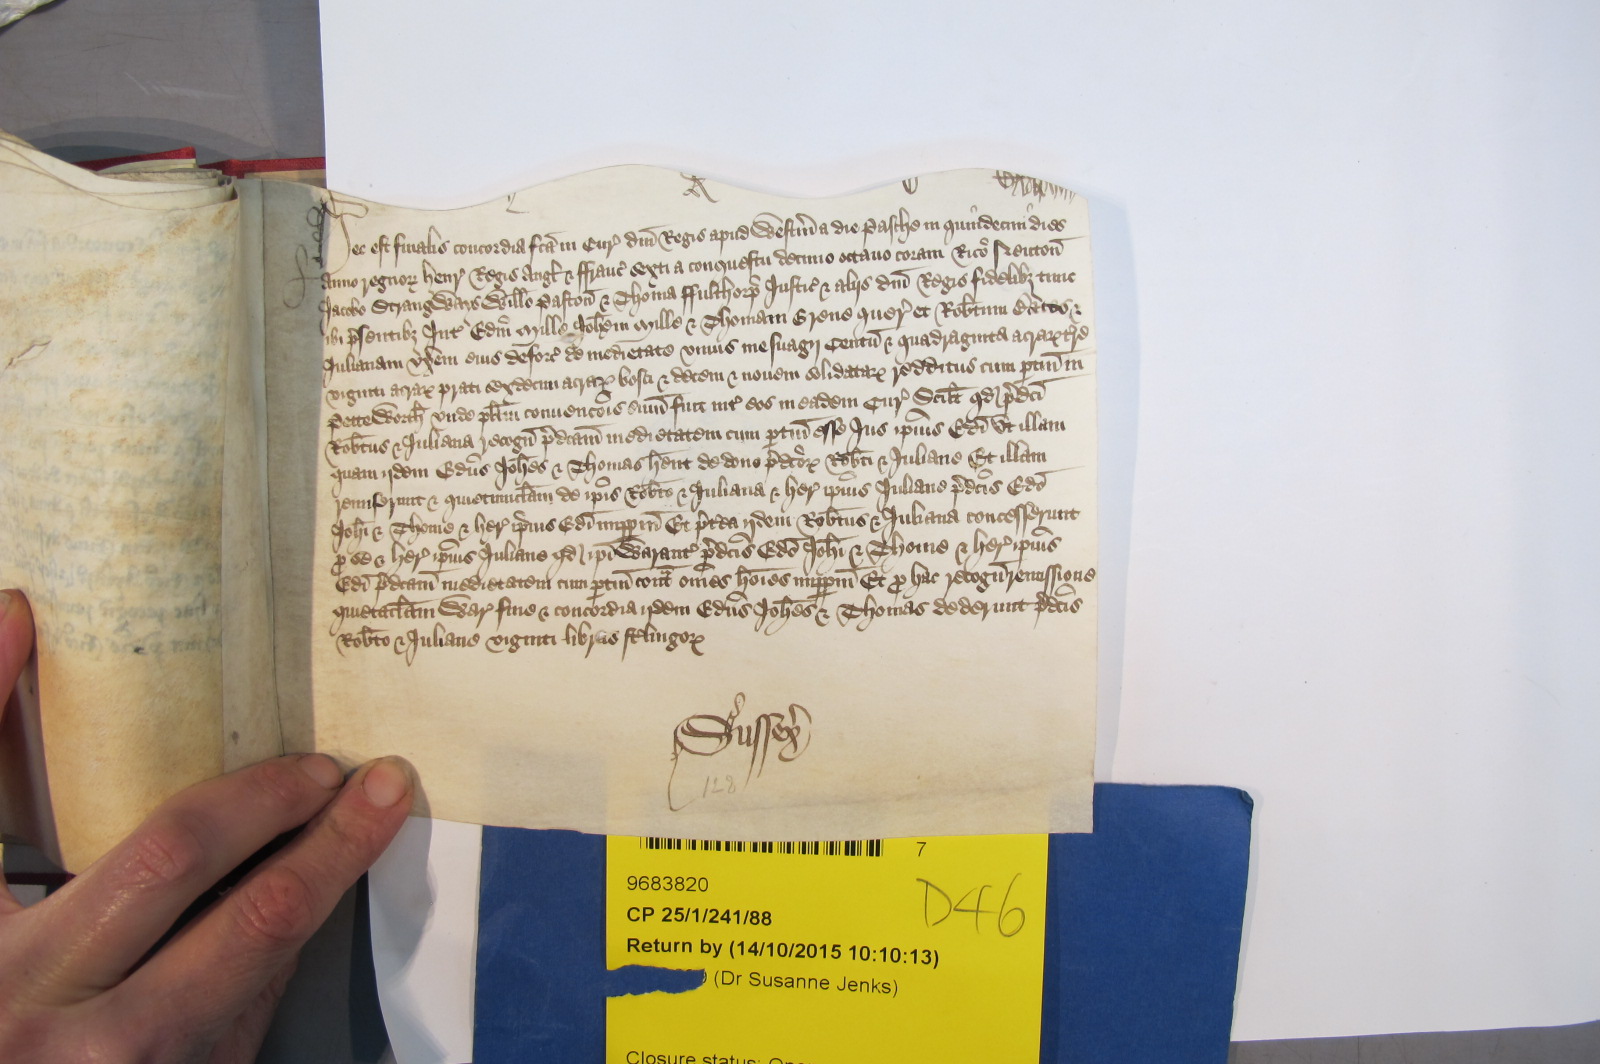 Hec est finalis concordia fca in Cur dni Regis apud Westm a die Pasche in quindecim dies
Anno regnor Henr Regis Angl & Franc sexti a conquestu decimo octavo coram Rico Neuton
Jacobo Strangways Willo Paston & Thoma Fulthorp Justic & aliis dni Regis fidelibz tunc
ibi psentibz Int Edm Mille Johem Mille & Thomam Grene quer et Robtum &
Julianam uxem eius deforc de medietate unius mesuagii Centu & quadraginta acrar tre
viginti acrar prati sexdecim acrar bosci & decem & novem solidatar redditus cum ptin in
Petteworth unde plitm convencois sum fuit int eos in eadem Cur Scilt qd pdci
Robtus & Juliana recogn pdcam medietatem cum ptin esse Jus ipius Edi Ut illam
quam iidem Edus Johes & Thomas hent de dono pdcor Robti & Juliane Et illam
remiserunt & quietumclam de ipis Robto & Juliana & her ipius Juliane pdcis Edo
Johi & Thome & her ipius Edi imppm Et pterea iidem Robtus & Juliana concesserunt
p se & her ipius Juliane qd ipi Warant pdcis Edo Johi & Thome & her ipius
Edi pdcam medietatem cum ptin cont omes hoies imppm Et p hac recogn remissione
quietaclam War fine & concordia iidem Edus Johes & Thomas dederunt pdcis
Robto & Juliane viginti libras stlingor
Sussex
128
7
9683820
D46
CP 25/1/241/88
Return by (14/10/2015 10:10:13)
(Dr Susanne Jenks)
Closure status: